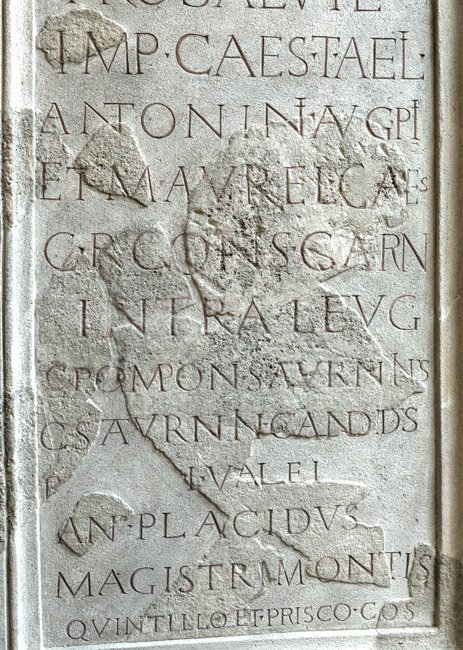 PRO SALVTE
IMP·CAES·T·AEL·
ANTONINI·AVG·PI
ET·M·AVRELI·CAES
C·R·CONS·CARN
INTRA·LEVG
C·POMPON·SATVRNINVS
C·SATVRNIN·CANDIDVS
VALE
PLACIDVS
MAGISTRI·MONTIS
QVINTILLO·ET·PRISCO·COS